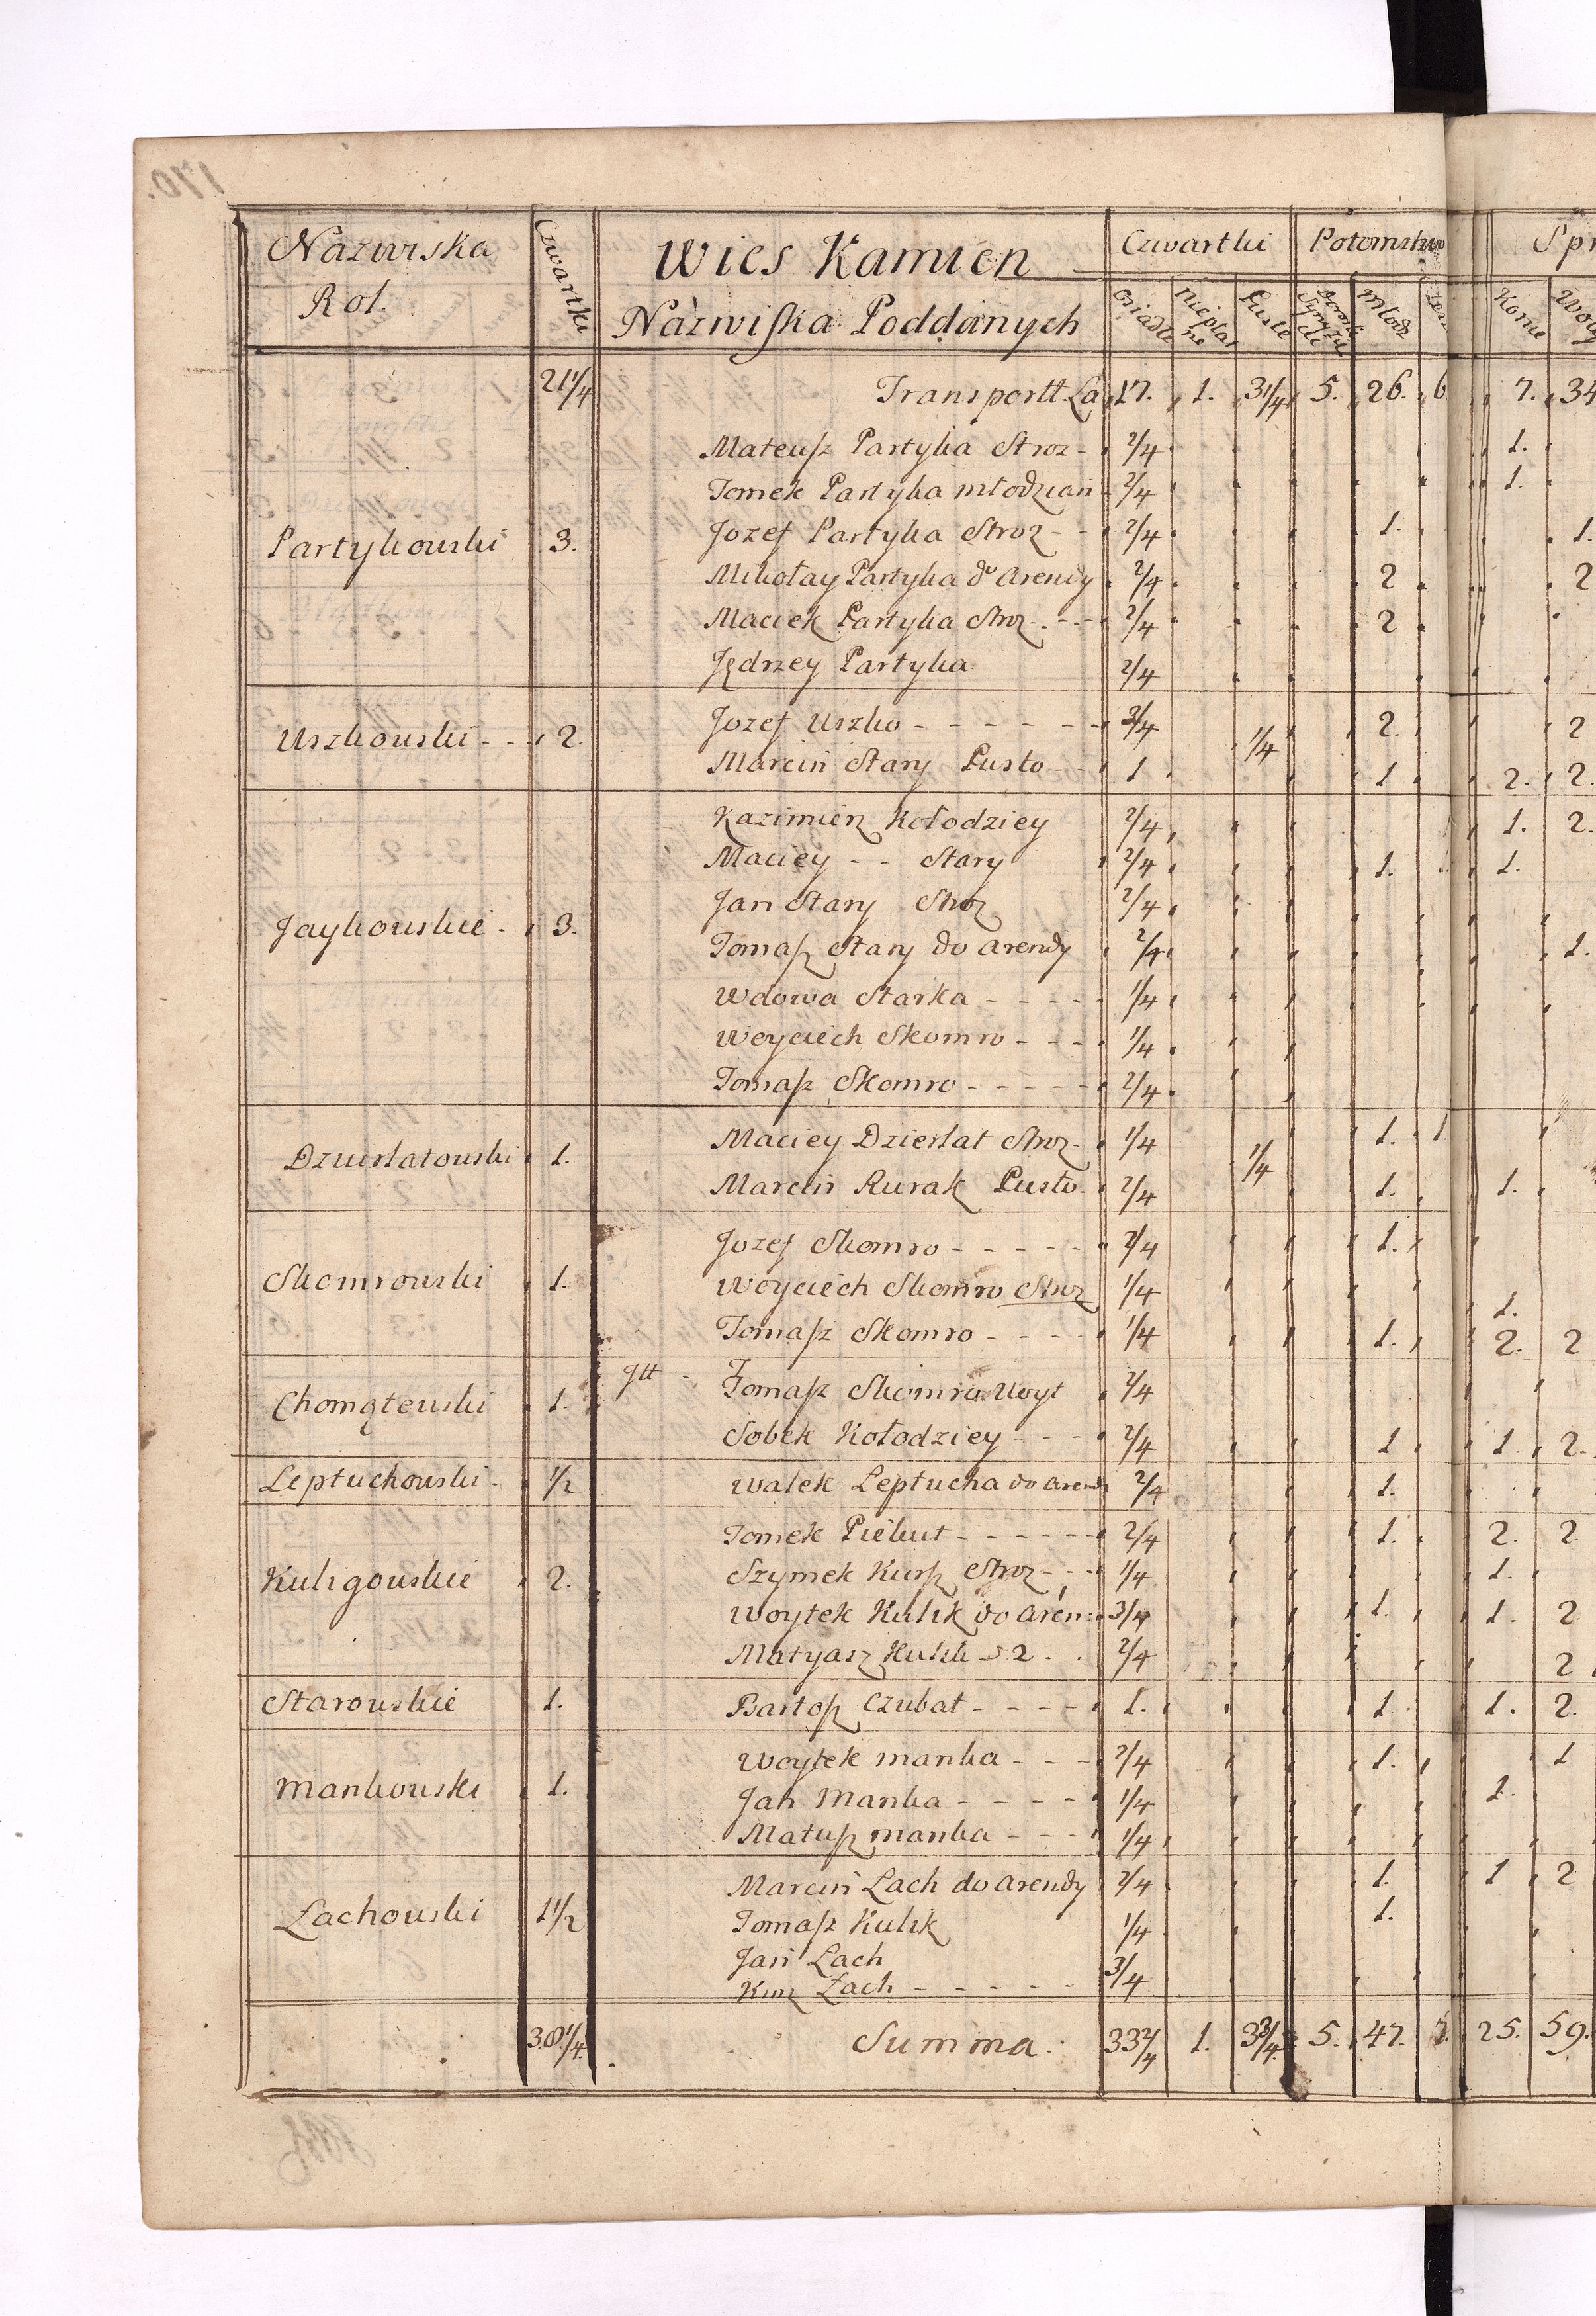 170.
Nazwiska Rol. Czwartki Wies Kamien Czwartki Potomstwo Spr
Nazwiska Poddanych osiadłe niepłat ne Puste Młodz Konie Woły
21 1/4 Transportt. La 17. 1. 3 1/4 5. 26. 6 7. 34
Mateusz Partyka Stroz - 2/4 1.
Tomek Partyka młodzian 2/4 1.
Partykowski 3. Jozef Partyka Stroz - - 2/4 1. 1.
Mikołay Partyka do Arendy 2/4 2 2
Maciek Partyka Stroz - - - 2/4 2
Jędrzey Partyka 2/4
Uszkowski - - 2. Jozef Uszko - - - - - - 3/4 1/4 2. 2
Marcin Stary Pusto - - 1 1 2. 2.
Kazimierz Kołodziey 2/4 1. 2.
Maciey - - Stary 2/4 1. 1.
Jan Stary Stroz 2/4
Jaykowskie - 3. Tomasz Stary do arendy 2/4 1.
Wdowa Starka - - - - 1/4
Woyciech Skomro - - - 1/4
Tomasz Skomro - - - - - 2/4
Dzierlatowski 1. Maciey Dzierlat Stroz - 1/4 1/4 1. 1.
Marcin Rurak Pusto. 2/4 1. 1.
Jozef Skomro - - - - - 2/4 1.
Skomrowski 1. Woyciech Skomro Stroz 1/4 1.
Tomasz Skomro - - - - 1/4 1. 2. 2
Chomątewski 1. gtt - Tomasz Skomro Woyt 2/4
Sobek Kołodziey - - - 2/4 1 1. 2.
Leptuchowski - 1/2 Walek Leptucha do arend 2/4 1.
Tomek Piekut - - - - - - 2/4 1. 2. 2.
Kuligowskie 2. Szymek Kursz Stroz - - - 1/4 1.
Woytek Kulik do Aren 3/4 1. 1. 2
Matyasz Kulik 2/4 2
Starowskie 1. Bartosz Czubat - - - - 1. 1 1. 2.
Woytek Manka - - - 2/4 1. 1
Mankowski 1. Jan Manka - - - - 1/4 1.
Matusz Manka - - - 1/4
Marcin Lach do arendy 2/4 1. 1 2
Lachowski 1 1/2 Tomasz Kulik 1/4 1.
Jan Lach
Lach - - - - - 3/4
38 1/4. Summa. 33 2/4 1. 3 3/4. 5. 47. 7. 25. 59.